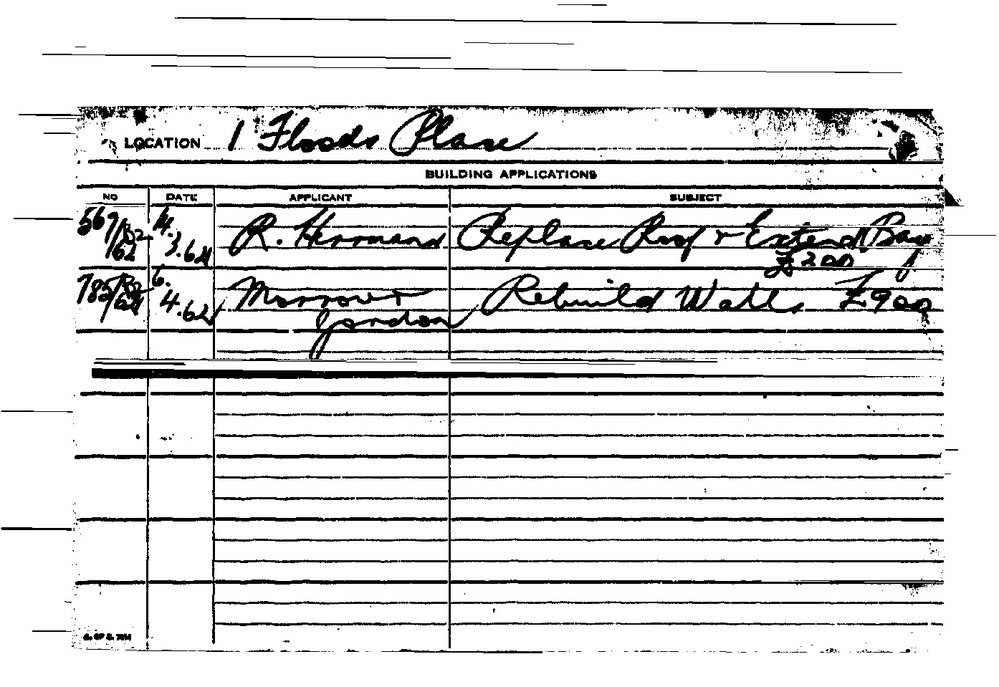 LOCATION 1 Floods Place
BUILDING APPLICATIONS
NO DATE APPLICANT SUBJECT
569/62 14.3.62 R. Hermand Replace Roof & Extend Bar
£200
785/62 6.4.62 Morrow & Rebuild Walls £900
Gordon